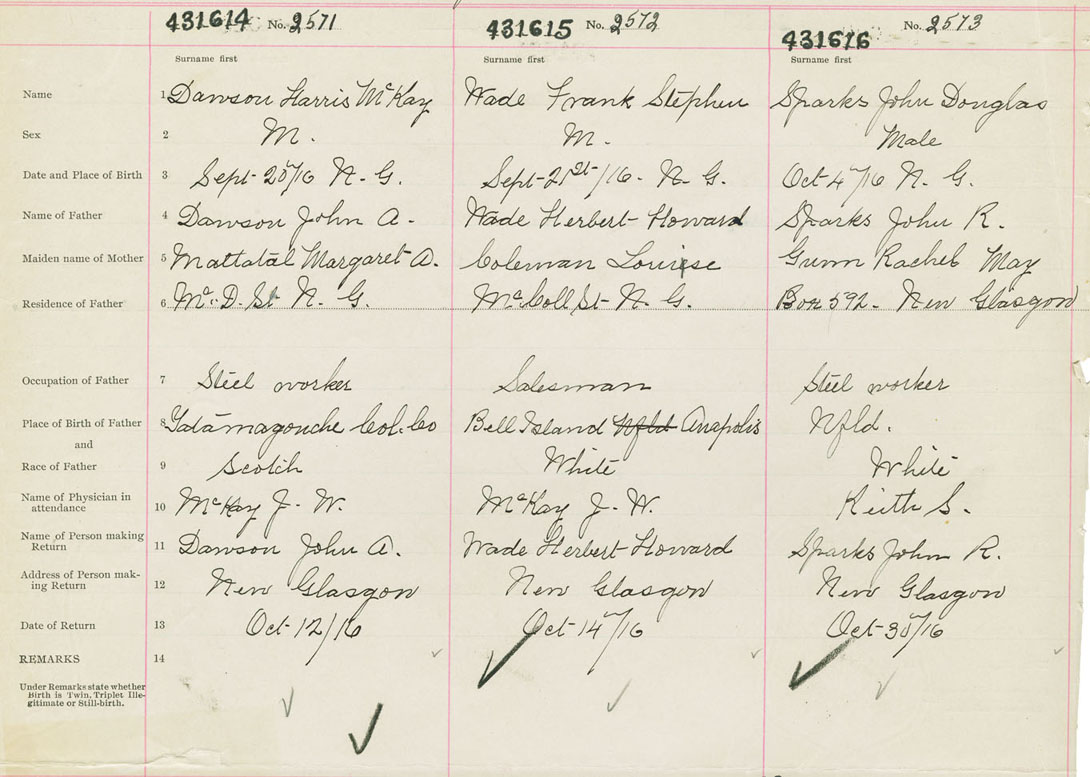 431614 No. 2571 431615 No. 2572 431616 No. 2573
Surname first Surname first Surname first
Name 1 Dawson Harris McKay Wade Frank Stephen Sparks John Douglas
Sex 2 M. M. Male
Date and Place of Birth 3 Sept 20/16 N. G. Sept-21st/16. N. G. Oct 4/16 N. G.
Name of Father 4 Dawson John A. Wade Herbert Howard Sparks John R.
Maiden name of Mother 5 Mattatal Margaret A. Coleman Louise Gunn Rachel May
Residence of Father 6 McD. St N. G. McColl St N. G. Box 592. New Glasgow
Occupation of Father 7 Steel worker Salesman Steel worker
Place of Birth of Father 8 Tatamagouche Col. Co Bell Island Nfld Anapolis Nfld.
and
Race of Father 9 Scotch White White
Name of Physician in
attendance 10 McKay J. W. McKay J. W. Keith S.
Name of Person making
Return 11 Dawson John A. Wade Herbert Howard Sparks John R.
Address of Person mak-
ing Return 12 New Glasgow New Glasgow New Glasgow
Date of Return 13 Oct 12/16 Oct 14/16 Oct 30/16
REMARKS 14
Under Remarks state whether
Birth is Twin, Triplet Ille-
gitimate or Still-birth.